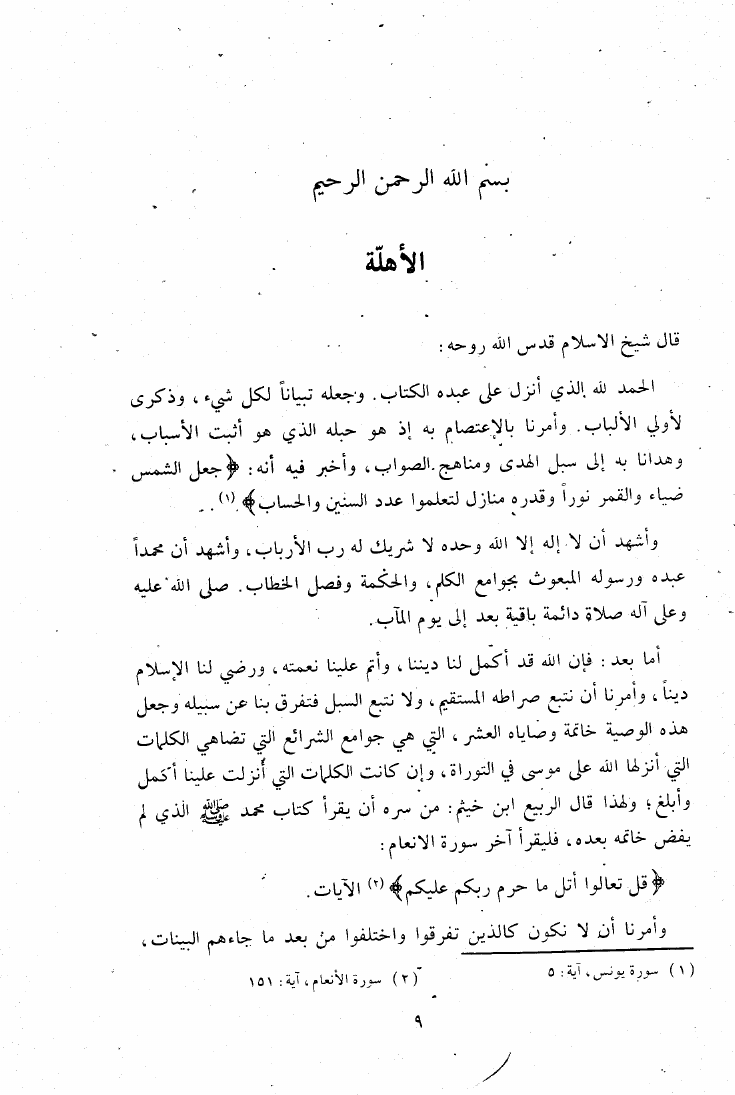 بسم الله الرحمن الرحيم
الأهلّة
قال شيخ الاسلام قدس الله روحه :
الحمد لله الذي أنزل على عبده الكتاب. وجعله تبياناً لكل شيء ، وذكرى
لأولي الألباب. وأمرنا بالإعتصام به إذ هو حبله الذي هو أثبت الأسباب،
وهدانا به إلى سبل الهدى ومناهج الصواب ، وأخبر فيه أنه: ﴿جعل الشمس
ضياء والقمر نوراً وقدره منازل لتعلموا عدد السنين والحساب﴾ (١) .
وأشهد أن لا إله إلا الله وحده لا شريك له رب الأرباب، وأشهد أن محمداً
عبده ورسوله المبعوث بجوامع الكلم، والحكمة وفصل الخطاب. صلى الله عليه
وعلى آله صلاة دائمة باقية بعد إلى يوم المآب.
أما بعد : فإن الله قد أكمل لنا ديننا ، وأتم علينا نعمته ، ورضي لنا الإسلام
ديناً ، وأمرنا أن نتبع صراطه المستقيم، ولا نتبع السبل فتفرق بنا عن سبيله وجعل
هذه الوصية خاتمة وصاياه العشر ، التي هي جوامع الشرائع التي تضاهي الكلمات
التي أنزلها الله على موسى في التوراة ، وإن كانت الكلمات التي أُنزلت علينا أكمل
وأبلغ ؛ ولهذا قال الربيع ابن خيثم: من سره أن يقرأ كتاب محمد ﷺ الذي لم
يفض خاتمه بعده ، فليقرأ آخر سورة الانعام :
﴿قل تعالوا أتل ما حرم ربكم عليكم﴾ (٢) الآيات .
وأمرنا أن لا نكون كالذين تفرقوا واختلفوا من بعد ما جاءهم البينات ،
(١) سورة يونس ، آية : ٥ (٢) سورة الأنعام ، آية : ١٥١
٩